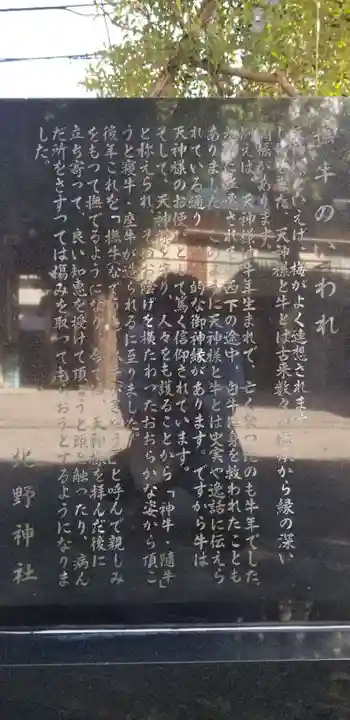 撫牛のいわれ
といえば、梅がよく連想されま
した、天神様と牛とは古来数々の から縁の深い
があります。
えば、天神様は牛年生まれで、亡くなったのも牛年でした。
西下の途中、白牛に身を救われたことも
ありました。このように天神様と牛とは史実や逸話に伝えら
れている通り 的な御神縁があります。ですから牛は
天神様のお使いとして篤く信仰されています。
そして、天神様を守り、人々をも護ることから「神牛・随牛」
と称えられ、そのお陰げを横たわったおおらかな姿から頂こ
うと寝牛・座牛が造られるに至りました。
後年これを「撫牛 」と呼んで親しみ
をもって撫でるようになり、今では、天神様を拝んだ後に
立ち寄って、良い知恵を授けて頂こうと頭を触ったり、病ん
だ所をさすっては痛みを取ってもらおうとするようになりま
した。
北野神社